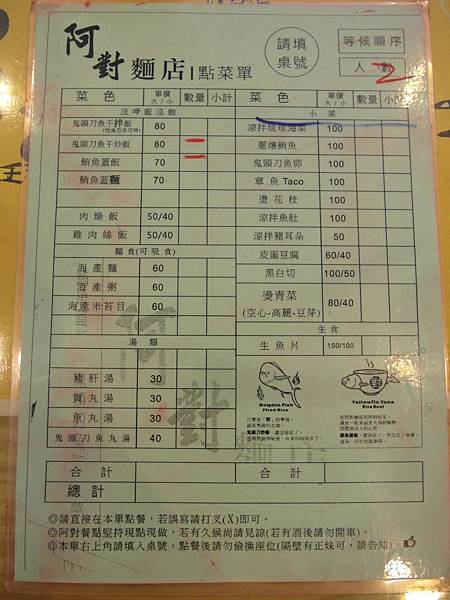 阿對麵店 | 點菜單
請填
桌號
等候順序
人數 2
菜色 單價 大/小 數量 小計
沒呷飯沒飽
鬼頭刀魚干拌飯 80
鬼頭刀魚干炒飯 80
鮪魚蓋飯 70
鮪魚蓋麵 70
肉燥飯 50/40
雞肉絲飯 50/40
麵食(可吸食)
海產麵 60
海產粥 60
海產米苔目 60
湯類
豬肝湯 30
貢丸湯 30
魚丸湯 30
鬼頭刀魚丸湯 40
合計
總計
菜色 單價 大/小 數量 小計
小菜
涼拌琉球海菜 100
蔥爆鮪魚 100
鬼頭刀魚卵 100
章魚 Taco 100
燙花枝 100
涼拌魚肚 100
涼拌豬耳朵 50
皮蛋豆腐 60/40
黑白切 100/50
燙青菜 80/40
(空心-高麗-豆芽)
生食
生魚片 150/100
Dolphin Fish
Fried Rice
Yellowfin Tuna
Rice Bowl
合計
阿對麵店
◎請直接在本單點餐，若誤寫請打叉(X)即可。
◎阿對餐點堅持現點現做，若有久候尚請見諒(若有酒後請勿開車)。
◎本單右上角請填入桌號，點餐後請勿偷換座位(隔壁有正妹可，請告知)。